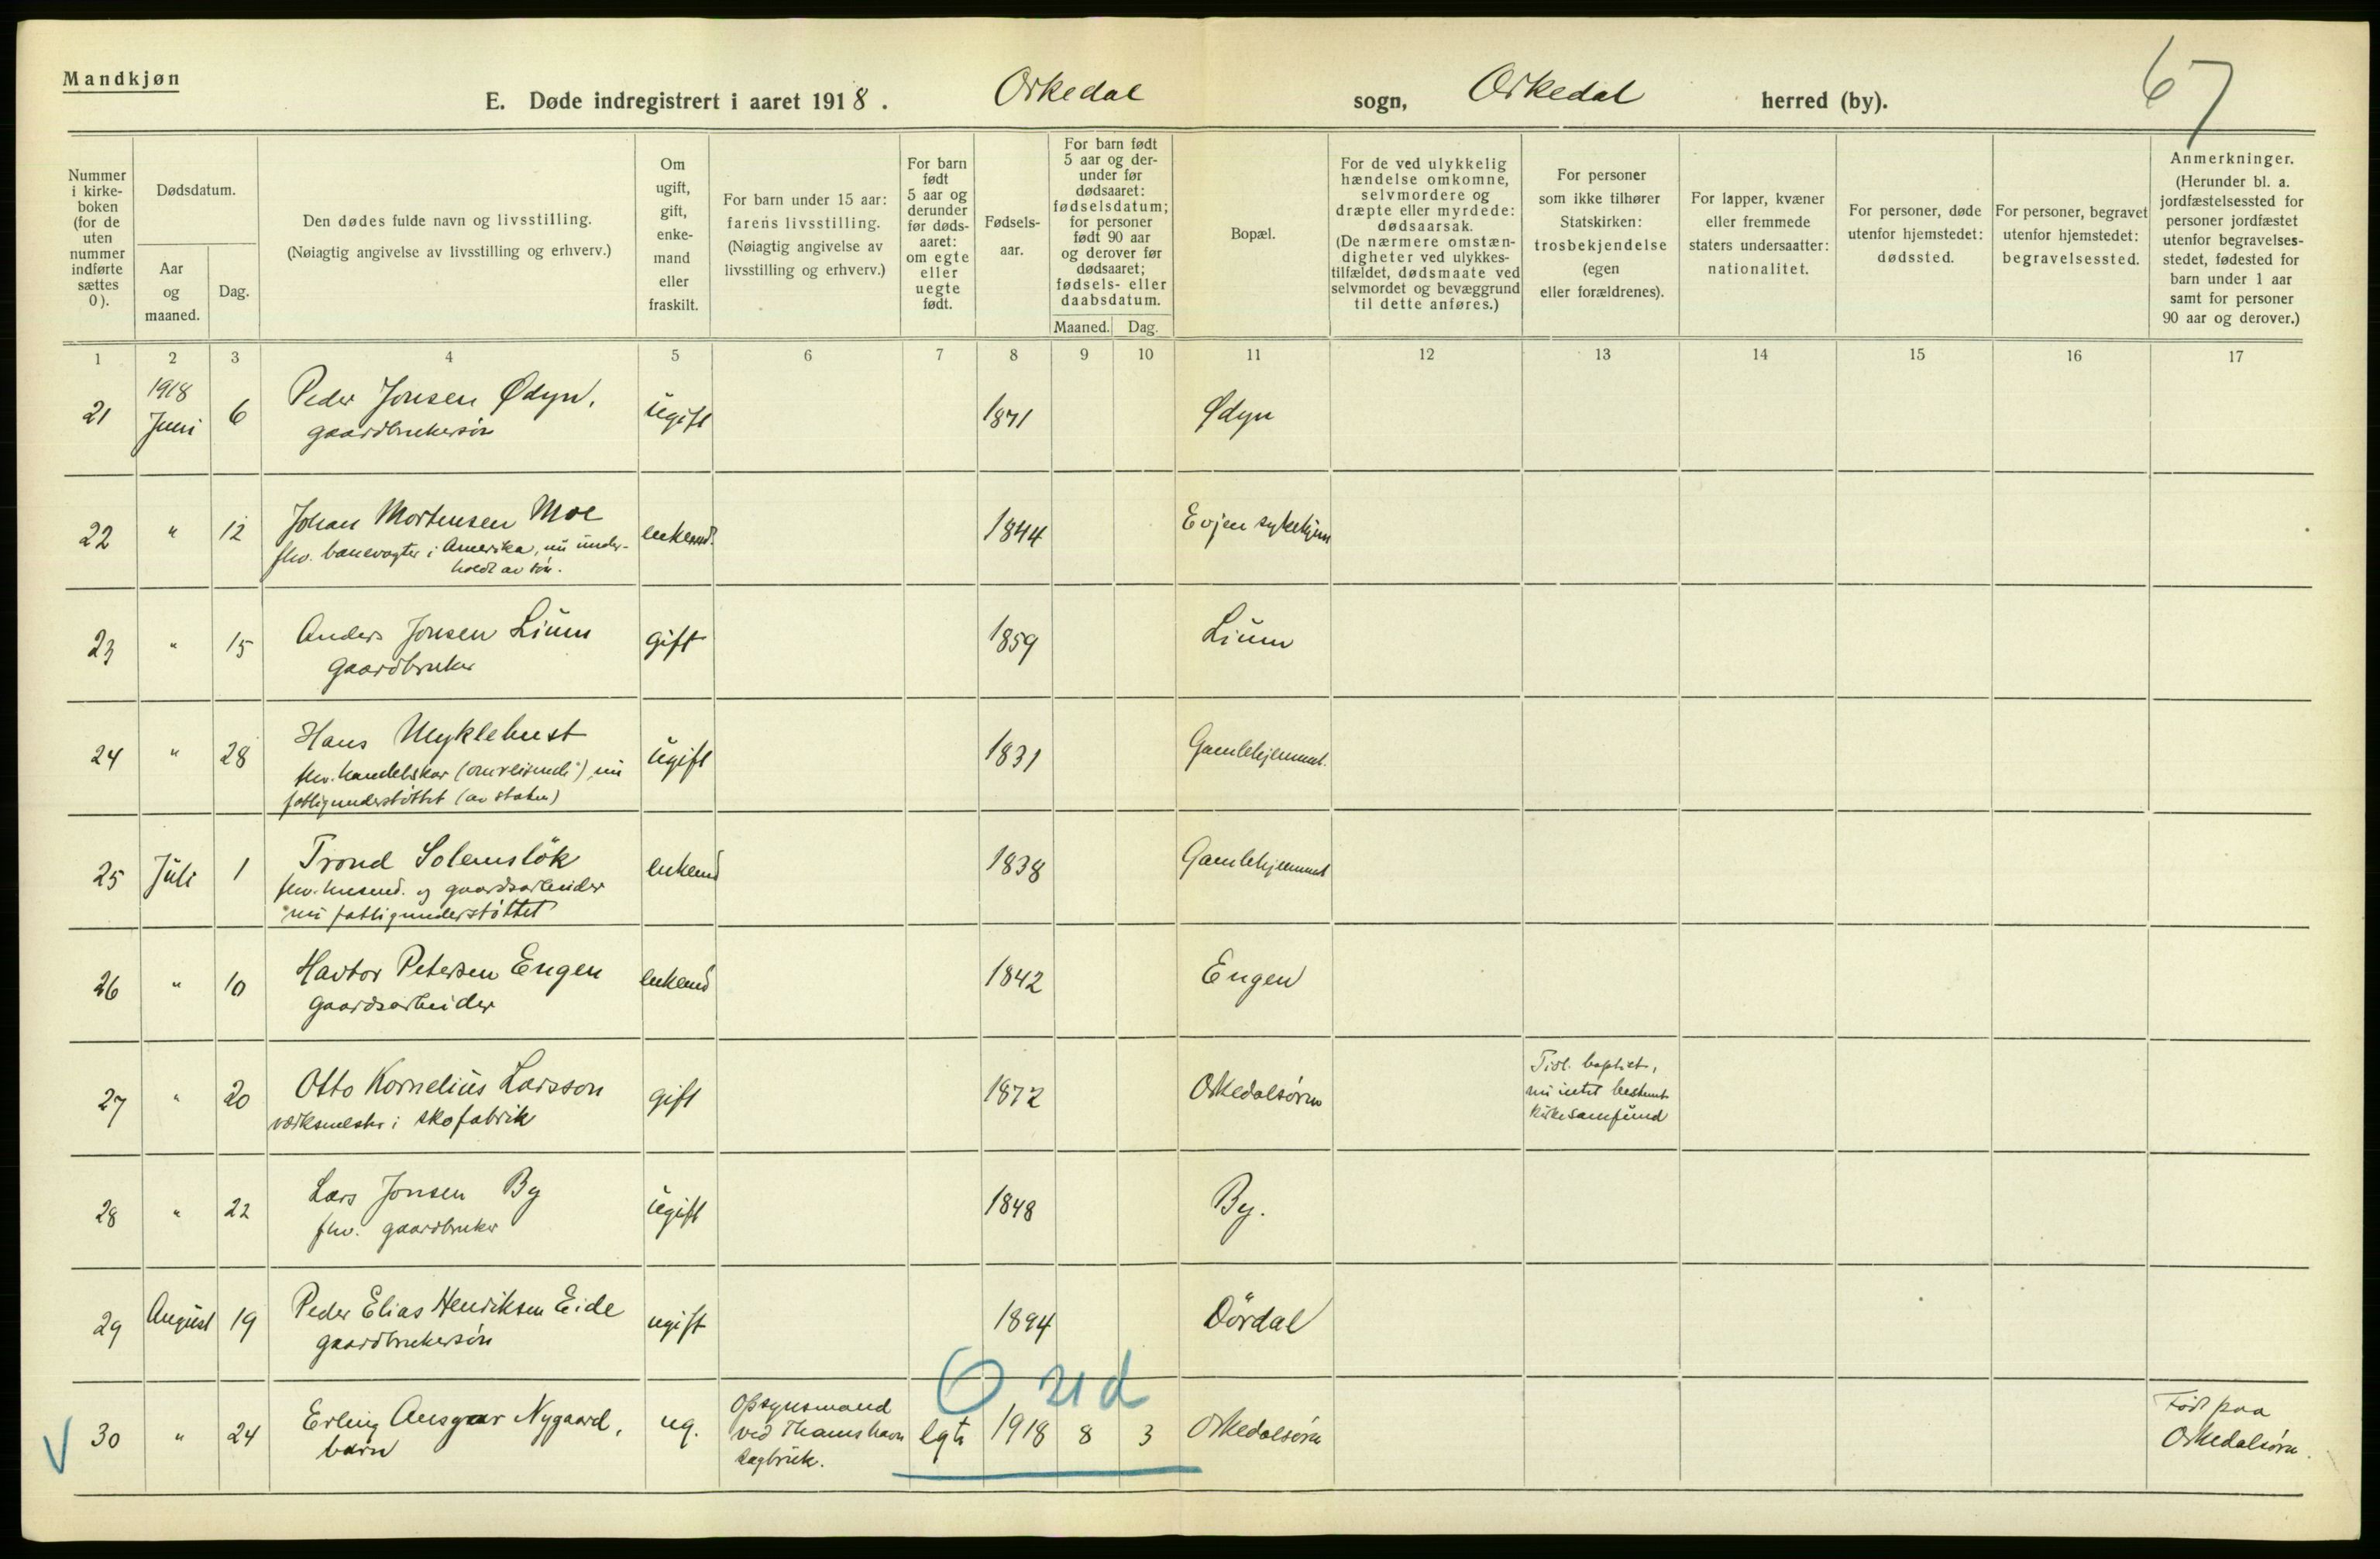 Mandkjøn
E. Døde indregistrert i aaret 1918. Orkedal sogn, Orkedal herred (by).
67
Nummer i kirke-boken (for de uten nummer indførte sættes 0).
Dødsdatum.
Aar og maaned.
Dag.
Den dødes fulde navn og livsstilling.
(Nøiagtig angivelse av livsstilling og erhverv.)
Om ugift, gift, enke-mand eller fraskilt.
For barn under 15 aar: farens livsstilling. (Nøiagtig angivelse av livsstilling og erhverv.)
For barn født 5 aar og derunder før døds-aaret: om egte eller uegte født.
Fødsels-aar.
For barn født 5 aar og der-under før dødsaaret: fødselsdatum; for personer født 90 aar og derover før dødsaaret; fødsels- eller daabsdatum.
Maaned. Dag.
Bopæl.
For de ved ulykkelig hændelse omkomne, selvmordere og dræpte eller myrdede: dødsaarsak. (De nærmere omstæn-digheter ved ulykkes-tilfældet, dødsmaate ved selvmordet og bevæggrund til dette anføres.)
For personer som ikke tilhører Statskirken: trosbekjendelse (egen eller forældrenes).
For lapper, kvæner eller fremmede staters undersaatter: nationalitet.
For personer, døde utenfor hjemstedet: dødssted.
For personer, begravet utenfor hjemstedet: begravelsessted.
Anmerkninger. (Herunder bl. a. jordfæstelsessted for personer jordfæstet utenfor begravelses-stedet, fødested for barn under 1 aar samt for personer 90 aar og derover.)
1 2 3 4 5 6 7 8 9 10 11 12 13 14 15 16 17
21 1918 Juni 6 Peder Jonsen Ødyn, ugift 1871 Ødyn
gaardbrukersøn
22 " 12 Johan Mortensen Moe enkemd. 1844 Evjen sykehjem
fhv. banevogter i Amerika, nu under-
holdt av søn.
23 " 15 Anders Jonsen Lium gift 1859 Lium
gaardbruker
24 " 28 Hans Myklebust ugift 1831 Gamlehjemmet.
fhv. handelskar (omreisende), nu
fattigunderstöttet (av staten)
25 Juli 1 Trond Solemslök enkemd 1838 Gamlehjemmet
fhv. husmd. og gaardsarbeider
nu fattigunderstöttet
26 " 10 Havtor Petersen Engen enkemd 1842 Engen
gaardsarbeider
27 " 20 Otto Kornelius Larsson gift 1872 Orkedalsøren Tidl. baptist,
værksmester i skofabrik nu intet bestemt
kirkesamfund
28 " 22 Lars Jonsen By ugift 1848 By.
fhv. gaardbruker
29 August 19 Peder Elias Henriksen Eide ugift 1894 Dördal
gaardbrukersøn
0 md
30 " 24 Erling Ansgar Nygaard, ug. Opsynsmand ved Thamshavn sagbruk. egte 1918 8 3 Orkedalsøren Født paa Orkedalsøren.
barn